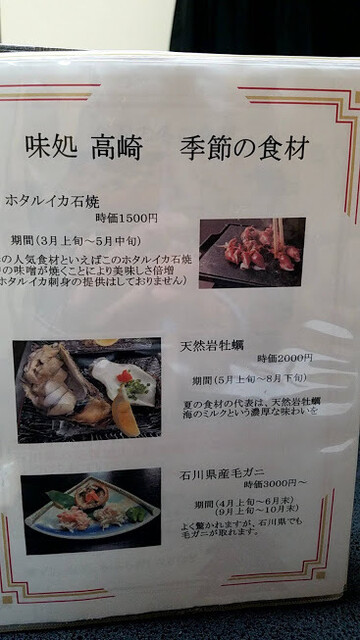 味処 高崎 季節の食材
ホタルイカ石焼
時価1500円
期間(3月上旬～5月中旬)
の人気食材といえばこのホタルイカ石焼
の味噌が焼くことにより美味しさ倍増
ホタルイカ刺身の提供はしておりません)
天然岩牡蠣
時価2000円
期間(5月上旬～8月下旬)
夏の食材の代表は、天然岩牡蠣
海のミルクという濃厚な味わいを
石川県産毛ガニ
時価3000円～
期間(4月上旬～6月末)
(9月上旬～10月末)
よく驚かれますが、石川県でも
毛ガニが取れます。